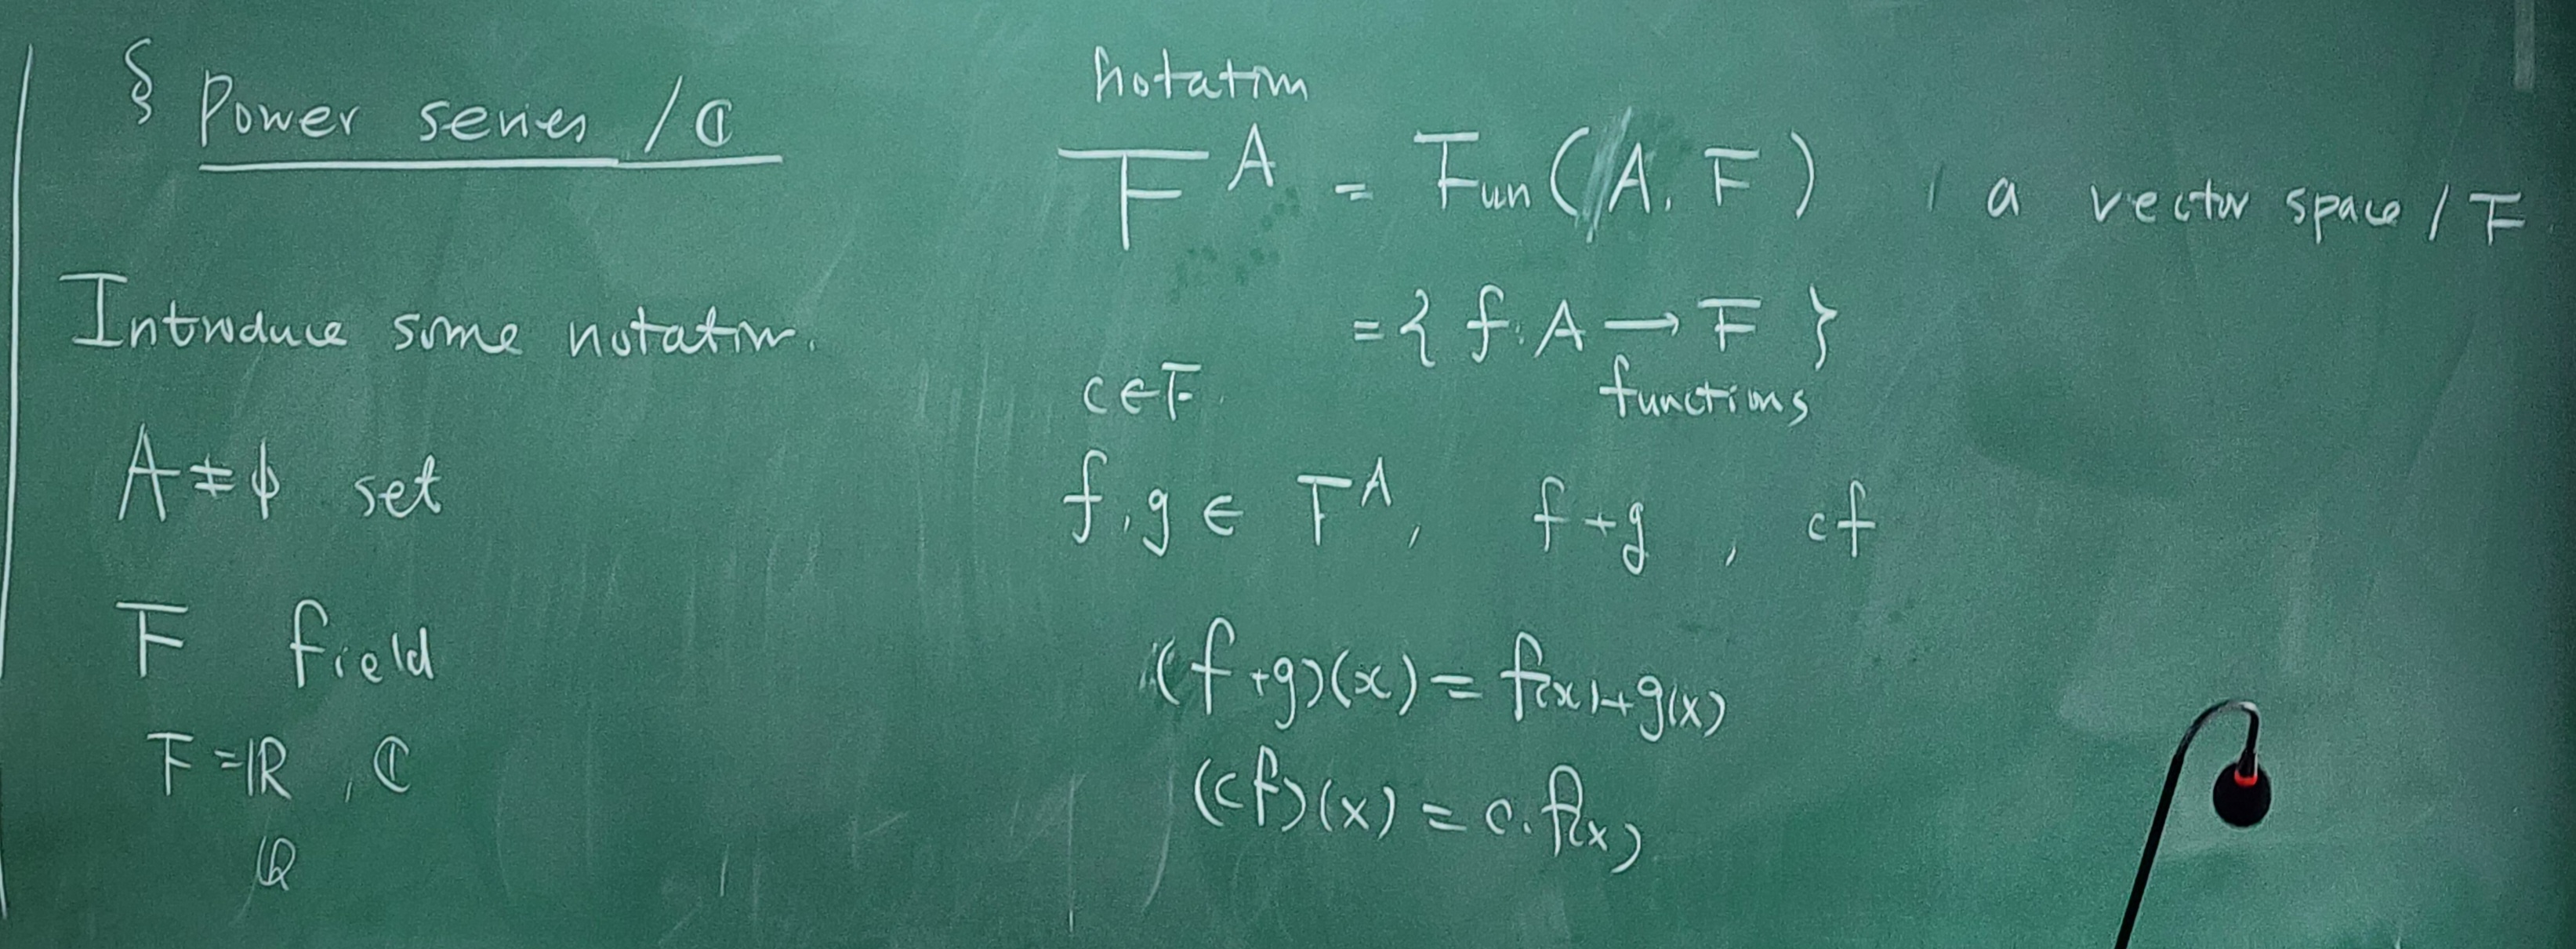 § Power series / ℂ
Introduce some notation.
A ≠ ϕ set
F field
F = ℝ , ℂ
ℚ
notation
F^A = Fun(A, F) , a vector space / F.
= { f : A → F }
functions
c ∈ F.
f, g ∈ F^A, f+g , cf
(f+g)(x) = f(x)+g(x)
(cf)(x) = c·f(x)